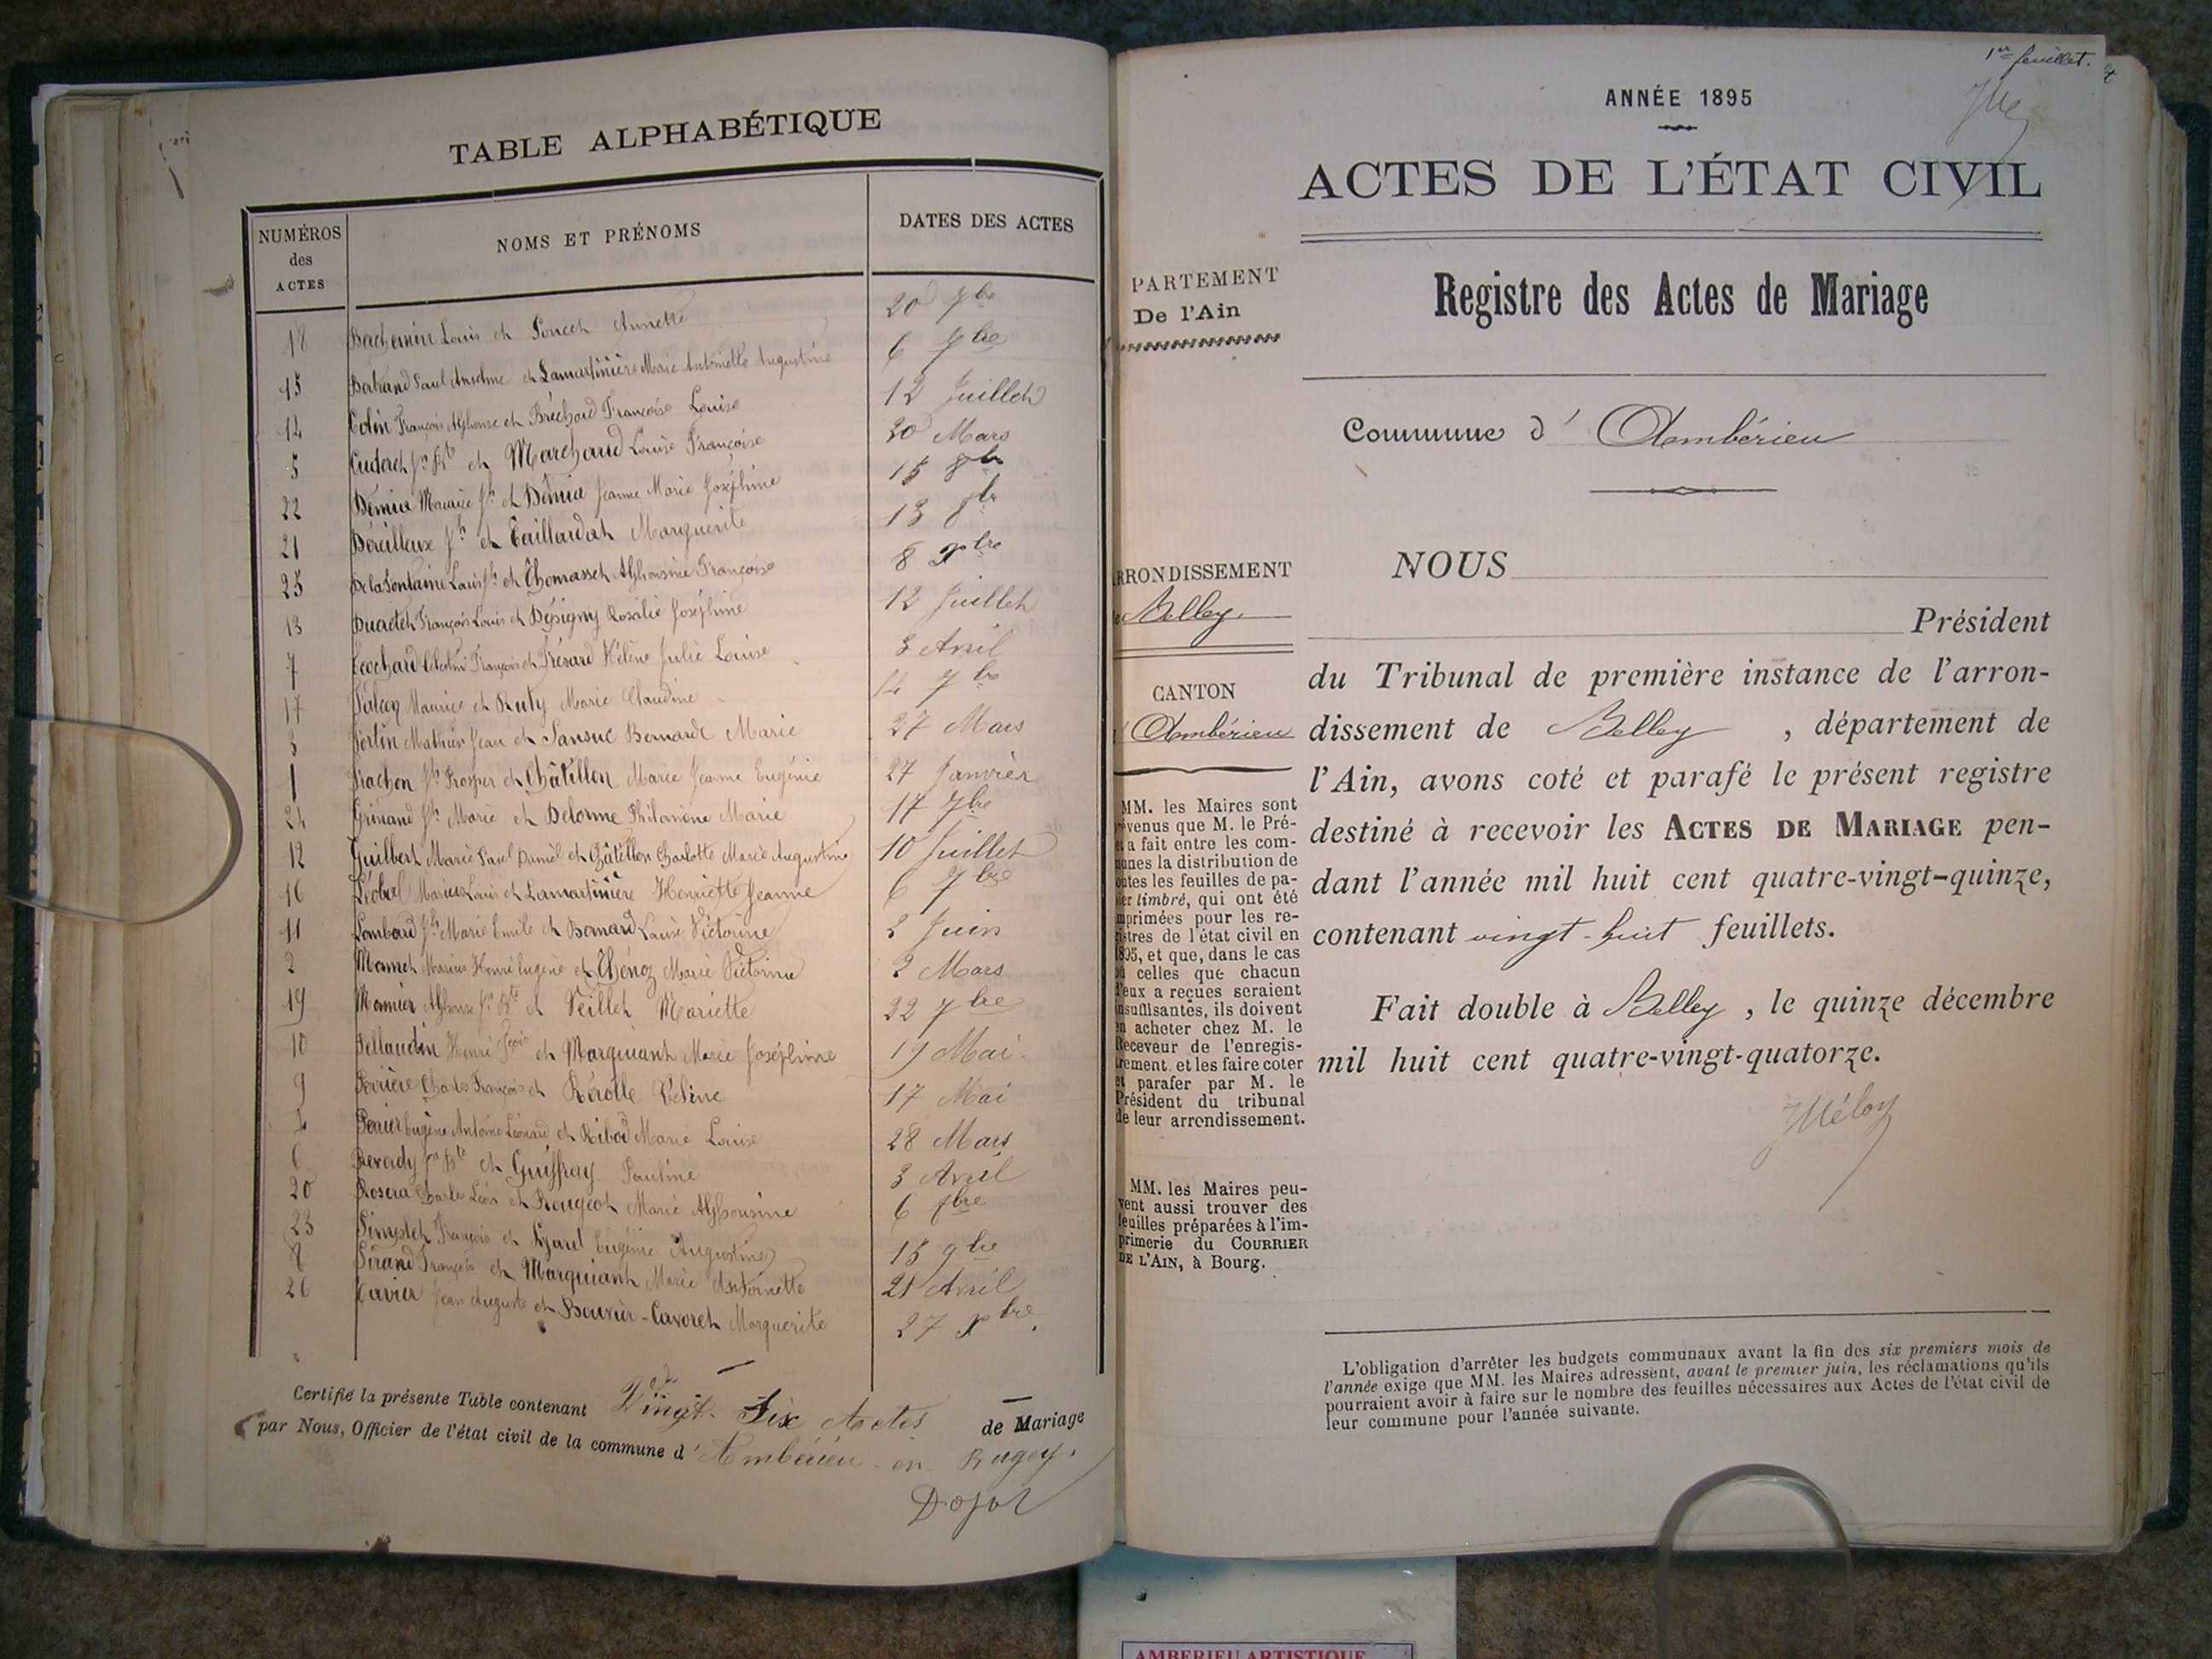 TABLE ALPHABÉTIQUE
NUMÉROS des ACTES
NOMS ET PRÉNOMS
DATES DES ACTES
18 Berchemin Louis et Poncet Annette 20 7bre
15 Bertrand Paul Anselme et Lamartinière Marie Antoinette Augustine 6 7bre
14 Colin François Alphonse et Bréchard Françoise Louise 12 Juillet
5 et Marchand Louise Françoise 30 Mars
22 Démia Maurice Jh et Démia Jeanne Marie Joséphine 15 8bre
21 Jh et Taillardat Marguerite 13 8bre
25 Delafontaine Louis Jh et Thomasset Alphonsine Françoise 8 Xbre
13 Ducretet François Louis et Désigny Rosalie Joséphine 12 Juillet
7 François et Frésard Hélène Julie Louise 3 Avril
17 Maurice et Ruty Marie Claudine 14 7bre
3 Fortin Mathieu Jean et Sansuc Bernarde Marie 27 Mars
1 Frachon Jh Prosper et Châtillon Marie Jeanne Eugénie 27 Janvier
24 Jh Marie et Delorme Philomène Marie 17 9bre
12 Guilbert Marie Paul Daniel et Châtillon Charlotte Marie Augustine 10 Juillet
16 Marius Louis et Lamartinière Henriette Jeanne 6 7bre
11 Lombard Jh Marie Emile et Bernard Louise Victorine 2 Juin
2 Marius Henri Eugène et Thénoz Marie Victorine 2 Mars
19 Monnier Alphonse Jn Bte et Veillet Mariette 22 7bre
10 Pellaudin Henri et Marquiant Marie Joséphine 19 Mai.
9 Perrière Charles François et Rérolle Céline 17 Mai
4 Perrier Eugène Antoine Léonard et Ribod Marie Louise 28 Mars
6 Reverdy Jn Bte et Guiffray Pauline 3 Avril
20 Charles Léon et Rougeot Marie Alphonsine 6 8bre
23 François et Eugénie Augustine 15 9bre
8 Sirand François et Marquiant Marie Antoinette 21 Avril
26 Jean Auguste et Bouvier-Cavoret Marguerite 27 Xbre.
Certifié la présente Table contenant Vingt-Six Actes de Mariage
par Nous, Officier de l'état civil de la commune d'Ambérieu-en Bugey.
1er feuillet.
ANNÉE 1895
ACTES DE L'ÉTAT CIVIL
PARTEMENT
De l'Ain
Registre des Actes de Mariage
Commune d' Ambérieu
RRONDISSEMENT
Belley.
CANTON
Ambérieu
MM. les Maires sont
venus que M. le Pré-
a fait entre les com-
unes la distribution de
outes les feuilles de pa-
er timbré, qui ont été
mprimées pour les re-
istres de l'état civil en
1895, et que, dans le cas
celles que chacun
d'eux a reçues seraient
insuffisantes, ils doivent
en acheter chez M. le
Receveur de l'enregis-
trement et les faire coter
et parafer par M. le
Président du tribunal
de leur arrondissement.
MM. les Maires peu-
vent aussi trouver des
feuilles préparées à l'im-
primerie du COURRIER
DE L'AIN, à Bourg.
NOUS
Président
du Tribunal de première instance de l'arron-
dissement de Belley , département de
l'Ain, avons coté et parafé le présent registre
destiné à recevoir les ACTES DE MARIAGE pen-
dant l'année mil huit cent quatre-vingt-quinze,
contenant vingt-huit feuillets.
Fait double à Belley , le quinze décembre
mil huit cent quatre-vingt-quatorze.
L'obligation d'arrêter les budgets communaux avant la fin des six premiers mois de
l'année exige que MM. les Maires adressent, avant le premier juin, les réclamations qu'ils
pourraient avoir à faire sur le nombre des feuilles nécessaires aux Actes de l'état civil de
leur commune pour l'année suivante.
AMBERIEU ARTISTIQUE